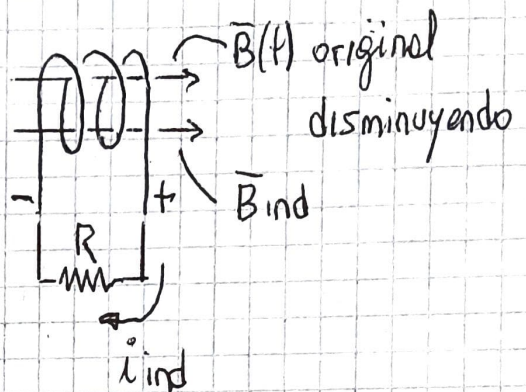 B̅(t) original
disminuyendo
B̅ ind
- +
R
i ind